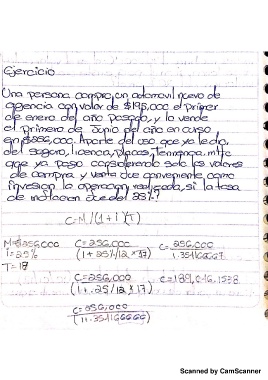 Ejercicio
Una persona compra, un automovil nuevo de
agencia con valor de $195,000 el primer
de enero del año pasado, y la vende
el primero de Junio del año en curso
en $256,000. Aparte del uso que ya le dio,
del seguro, licencia, placas, tenencia, mtto
que ya pago considerando solo los valores
de compra y venta fue conveniente como
inversion la operacion realizada, si la tasa
de inflacion fue del 25%?
C=M/(1+i)(T)
M=$256,000 C=256,000 C=256,000
i=25% (1+25%/12*17) 1.354166667
T=17
C=256,000 C=189,046.1538
(1+.25/12*17)
C=256,000
Scanned by CamScanner